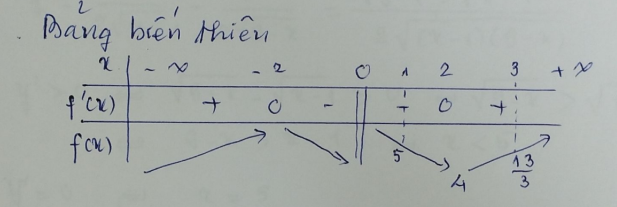 Bảng biến thiên
x - ∞ - 2 0 1 2 3 + ∞
f'(x) + 0 - - 0 +
f(x) 5 4 13/3